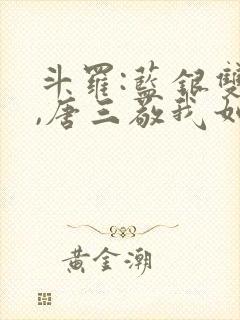 斗羅:藍銀雙
,唐三敬我如
黃金潮